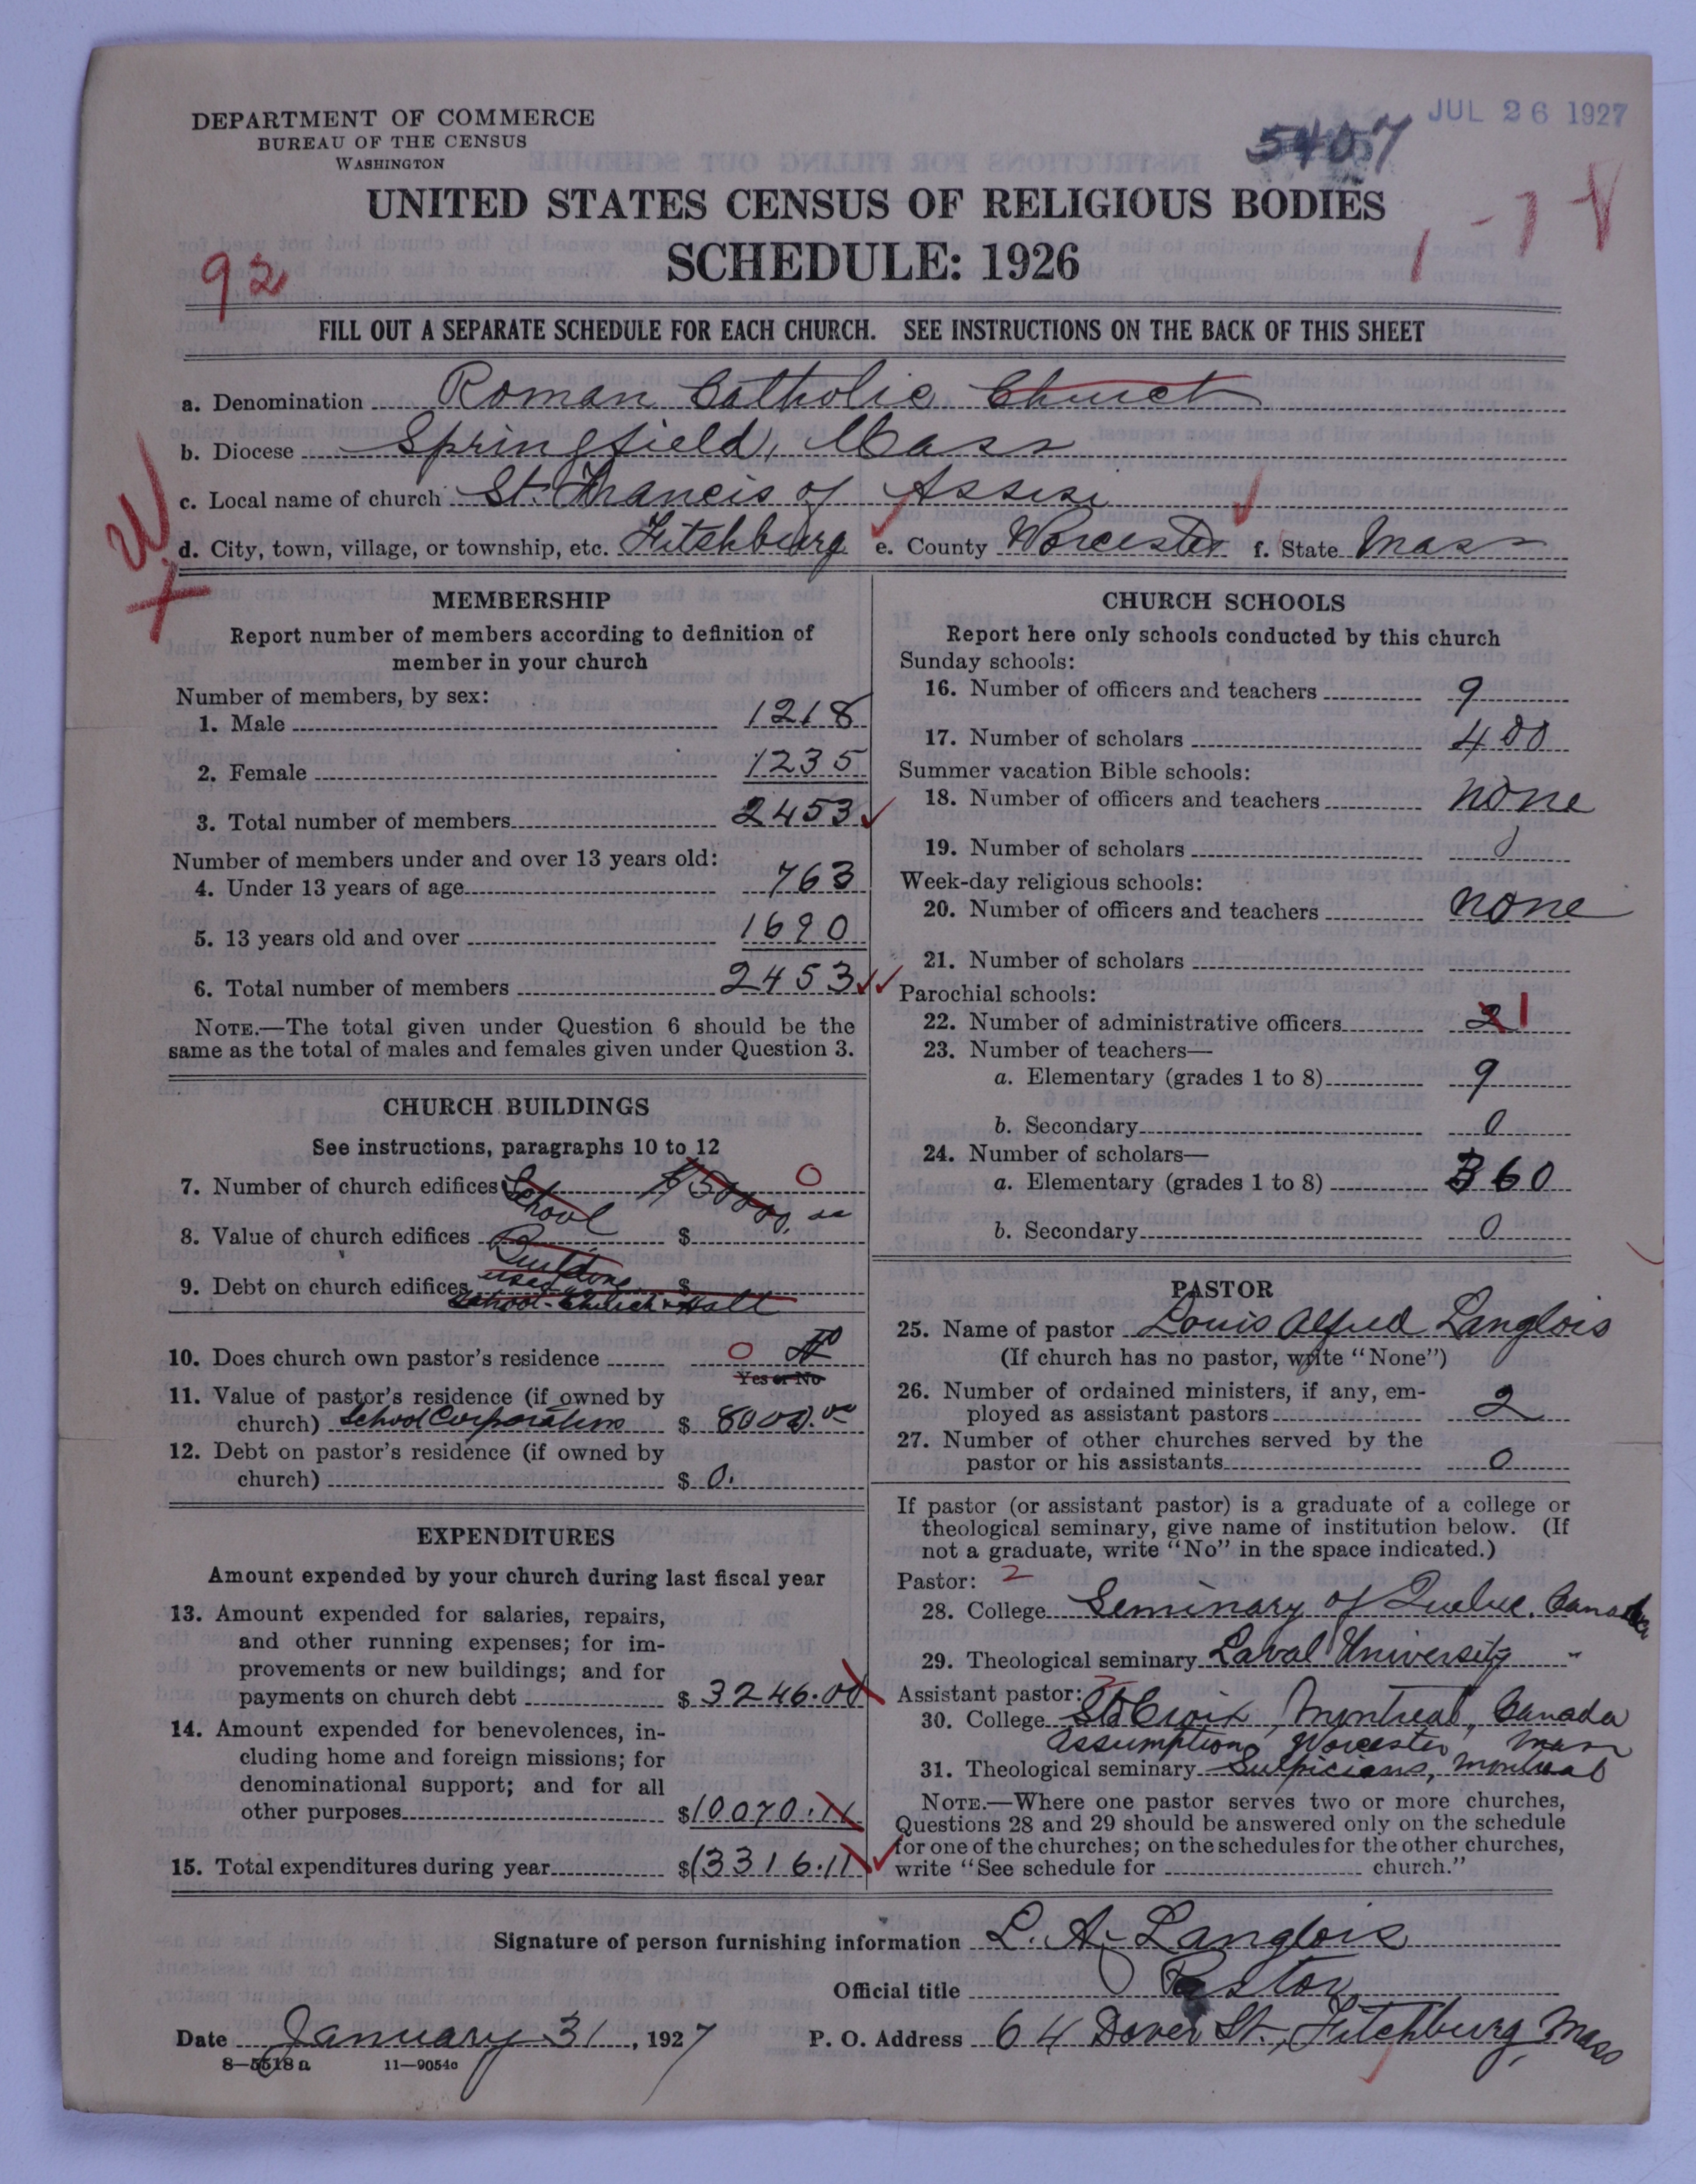 JUL 26 1927
DEPARTMENT OF COMMERCE
BUREAU OF THE CENSUS
WASHINGTON
5407
UNITED STATES CENSUS OF RELIGIOUS BODIES
1-78
SCHEDULE: 1926
92
FILL OUT A SEPARATE SCHEDULE FOR EACH CHURCH. SEE INSTRUCTIONS ON THE BACK OF THIS SHEET
a. Denomination Roman Catholic Church
b. Diocese Springfield, Mass
c. Local name of church St. Francis of Assisi
d. City, town, village, or township, etc. Fitchburg e. County Worcester f. State Mass
MEMBERSHIP
Report number of members according to definition of
member in your church
Number of members, by sex:
1. Male 1218
2. Female 1235
3. Total number of members 2453
Number of members under and over 13 years old:
4. Under 13 years of age 763
5. 13 years old and over 1690
6. Total number of members 2453
NOTE.—The total given under Question 6 should be the
same as the total of males and females given under Question 3.
CHURCH BUILDINGS
See instructions, paragraphs 10 to 12
7. Number of church edifices School 0
8. Value of church edifices Building $
9. Debt on church edifices used $
School-Church-Hall
10. Does church own pastor's residence 0
Yes or No
11. Value of pastor's residence (if owned by
church) School Corporation $ 8000.00
12. Debt on pastor's residence (if owned by
church) $ 0.
EXPENDITURES
Amount expended by your church during last fiscal year
13. Amount expended for salaries, repairs,
and other running expenses; for im-
provements or new buildings; and for
payments on church debt $ 3246.00
14. Amount expended for benevolences, in-
cluding home and foreign missions; for
denominational support; and for all
other purposes $ 10070.11
15. Total expenditures during year $ 13316.11
CHURCH SCHOOLS
Report here only schools conducted by this church
Sunday schools:
16. Number of officers and teachers 9
17. Number of scholars 400
Summer vacation Bible schools:
18. Number of officers and teachers none
19. Number of scholars 0
Week-day religious schools:
20. Number of officers and teachers none
21. Number of scholars
Parochial schools:
22. Number of administrative officers 2 1
23. Number of teachers—
a. Elementary (grades 1 to 8) 9
b. Secondary 0
24. Number of scholars—
a. Elementary (grades 1 to 8) 360
b. Secondary 0
PASTOR
25. Name of pastor Louis Alfred Langlois
(If church has no pastor, write "None")
26. Number of ordained ministers, if any, em-
ployed as assistant pastors 2
27. Number of other churches served by the
pastor or his assistants 0
If pastor (or assistant pastor) is a graduate of a college or
theological seminary, give name of institution below. (If
not a graduate, write "No" in the space indicated.)
Pastor: 2
28. College Seminary of Quebec, Canada
29. Theological seminary Laval University "
Assistant pastor:
30. College St Croix, Montreal, Canada
Assumption, Worcester, Mass
31. Theological seminary Sulpicians, Montreal
NOTE.—Where one pastor serves two or more churches,
Questions 28 and 29 should be answered only on the schedule
for one of the churches; on the schedules for the other churches,
write "See schedule for church."
Signature of person furnishing information L. A. Langlois
Official title Pastor
Date January 31, 1927 P. O. Address 64 Dover St., Fitchburg, Mass
8—5518 a 11—9054c